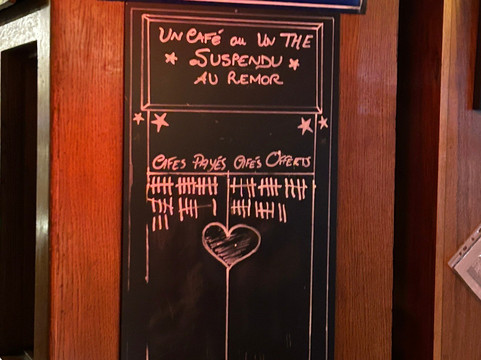 UN CAFÉ ou UN THE
SUSPENDU
AU REMOR
CAFES PAYÉS CAFÉS OFFERTS